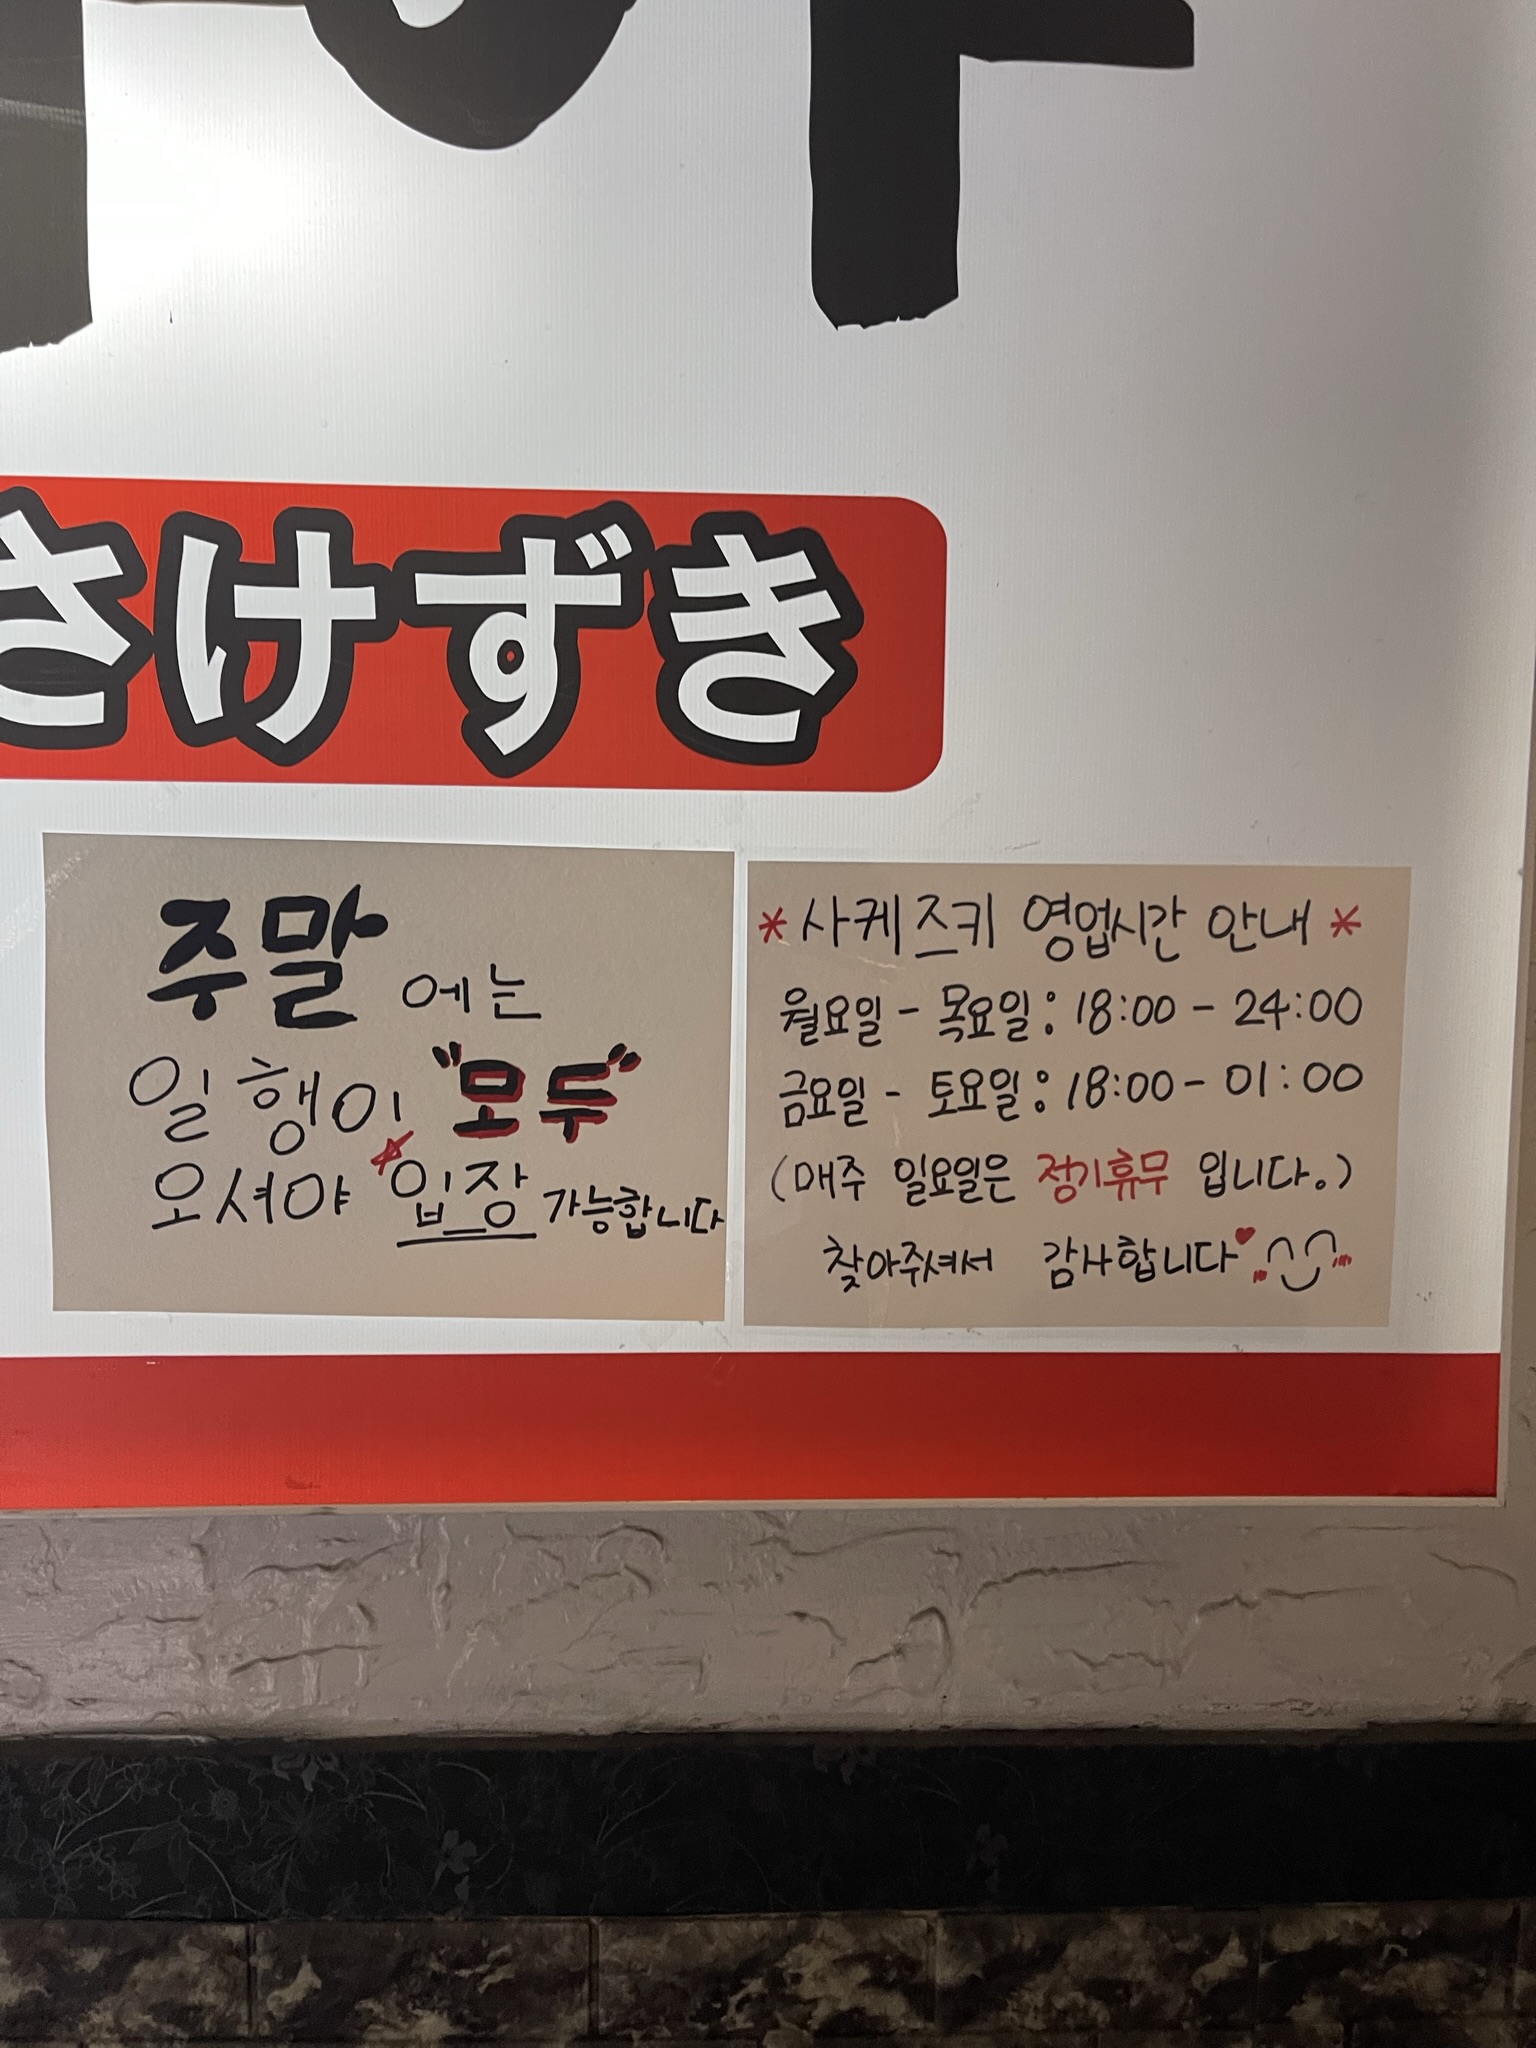 さけずき
주말에는
일행이 "모두"
오셔야 입장 가능합니다
* 사케즈키 영업시간 안내 *
월요일 - 목요일 : 18:00 - 24:00
금요일 - 토요일 : 18:00 - 01:00
(매주 일요일은 정기휴무 입니다.)
찾아주셔서 감사합니다♥